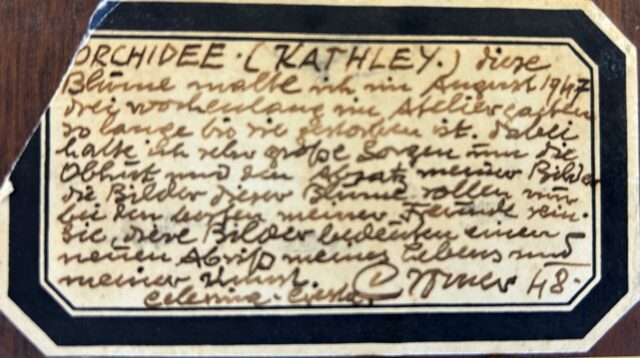 ORCHIDEE. (KATHLEY.) diese
Blume malte ich im August 1947
drei wochenlang im Ateliergarten
so lange bis sie gestorben ist. dabei
hatte ich sehr große Sorgen um die
Obhut und den Absatz meiner Bilder
die Bilder dieser Blume sollen nur
bei den besten meiner Freunde sein.
sie, diese Bilder bedeuten einen
neuen Abriß meines Lebens und
meiner Kunst. 48.
Celerina